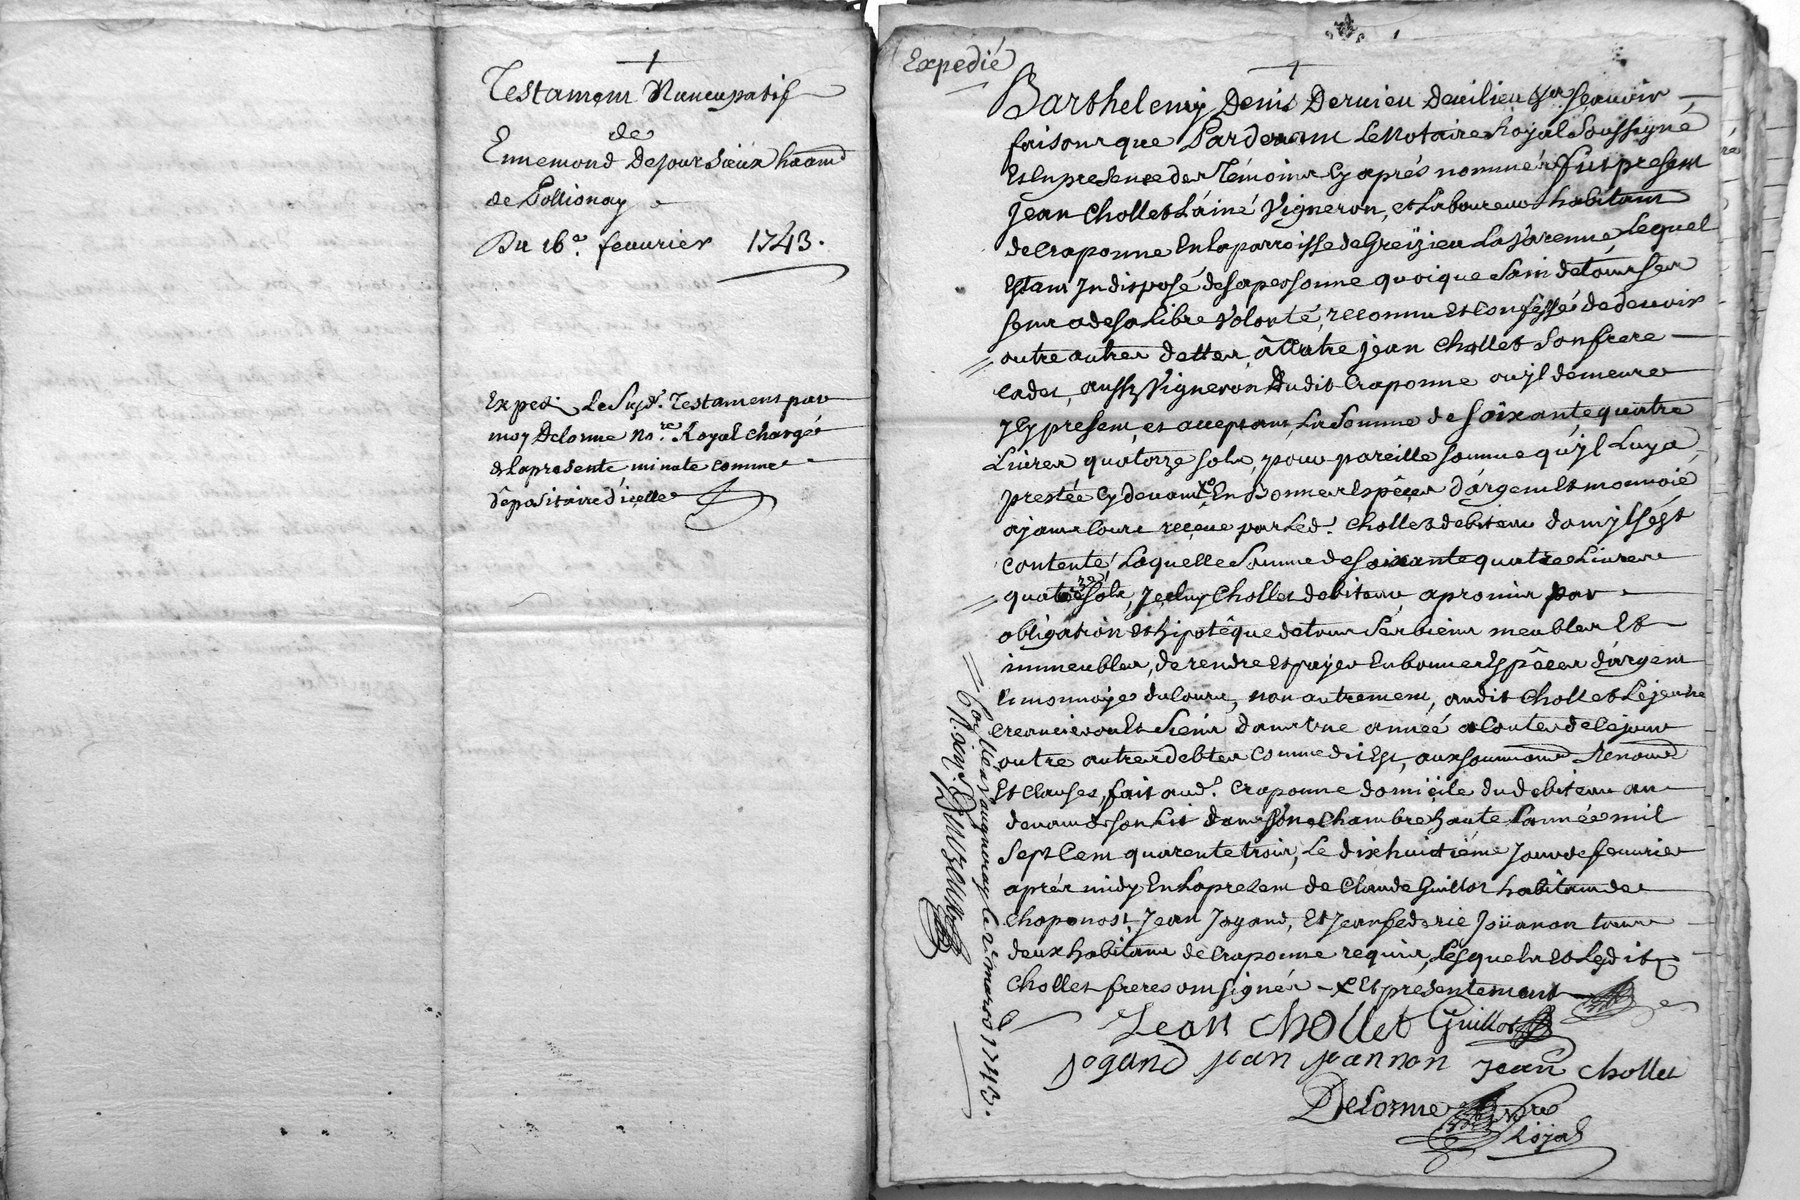 Testament Nuncupatif
de
Ennemond Dejoursieux hãant
de Pollionay
Du 16e. feuurier 1743.
Exped. Le Susd. Testament par
moy Delorme No.re Royal chargé
de la presente minute comme
dépositaire d'icelle
Expedié
Barthelemy Denis Deruieu Deuilieu Sçauoir
faisons que Pardeuant Le Notaire Royal Soussigné
Et En presence des Témoins Cy aprés nommés fut present
Jean Chollet L'ainé Vigneron, et Laboureur habitant
de Craponne En la parroisse de Greizieu La Varenne, Lequel
Estant Indisposé de sa personne quoique Sain de tous ses
sens a de sa Libre Volonté, reconnu Et Confessé de deuoir
outre autres dettes à Autre Jean Chollet Son frere
Cadet, aussy Vigneron Dudit Craponne ou jl demeure
Jcy present, et acceptant, La Somme de soixante quatre
Liures quatorze sols, pour pareille somme qu'jl Luy a
prestée Cy deuant En Bonnes Espêces d'argent Et monnoie
ajant Cours reçeue par Led. Chollet debiteur dont jl s'est
contenté, Laquelle Somme de Soixante quatre Liures
quatorze sols, Jceluy Chollet debiteur a promis par
obligation Et hipotêque de tous Ses biens meubles Et
immeubles, de rendre Et payer En bonnes Espêces d'argent
Et monnoye du Cours, non autrement, audit Chollet Le jeune
Creancier ou Es Siens dans Une année a Conter de Ce jour
outre autres debtes Comme dit Est, aux soummons Renonons
Et Clauses, fait aud. Craponne domiçile du debiteur au
deuant de son Lit dans son Chambre haute L'année mil
Sept Cent quarente trois, Le dix huictiéme Jour de feuurier
aprés midy En La present de Claude Guillot habitant de
Chaponost, Jean Jogand, Et Jean federic Joüanon tous
deux habitans de Craponne requis, Lesquels Et Ledits
Chollet freres ont signés - x Et presentement
Jean Chollet Guillot
Jogand jean joannon Jean chollet
Delorme Nre
Rojal
Collé a Vaugneray le 2e mars 1743.